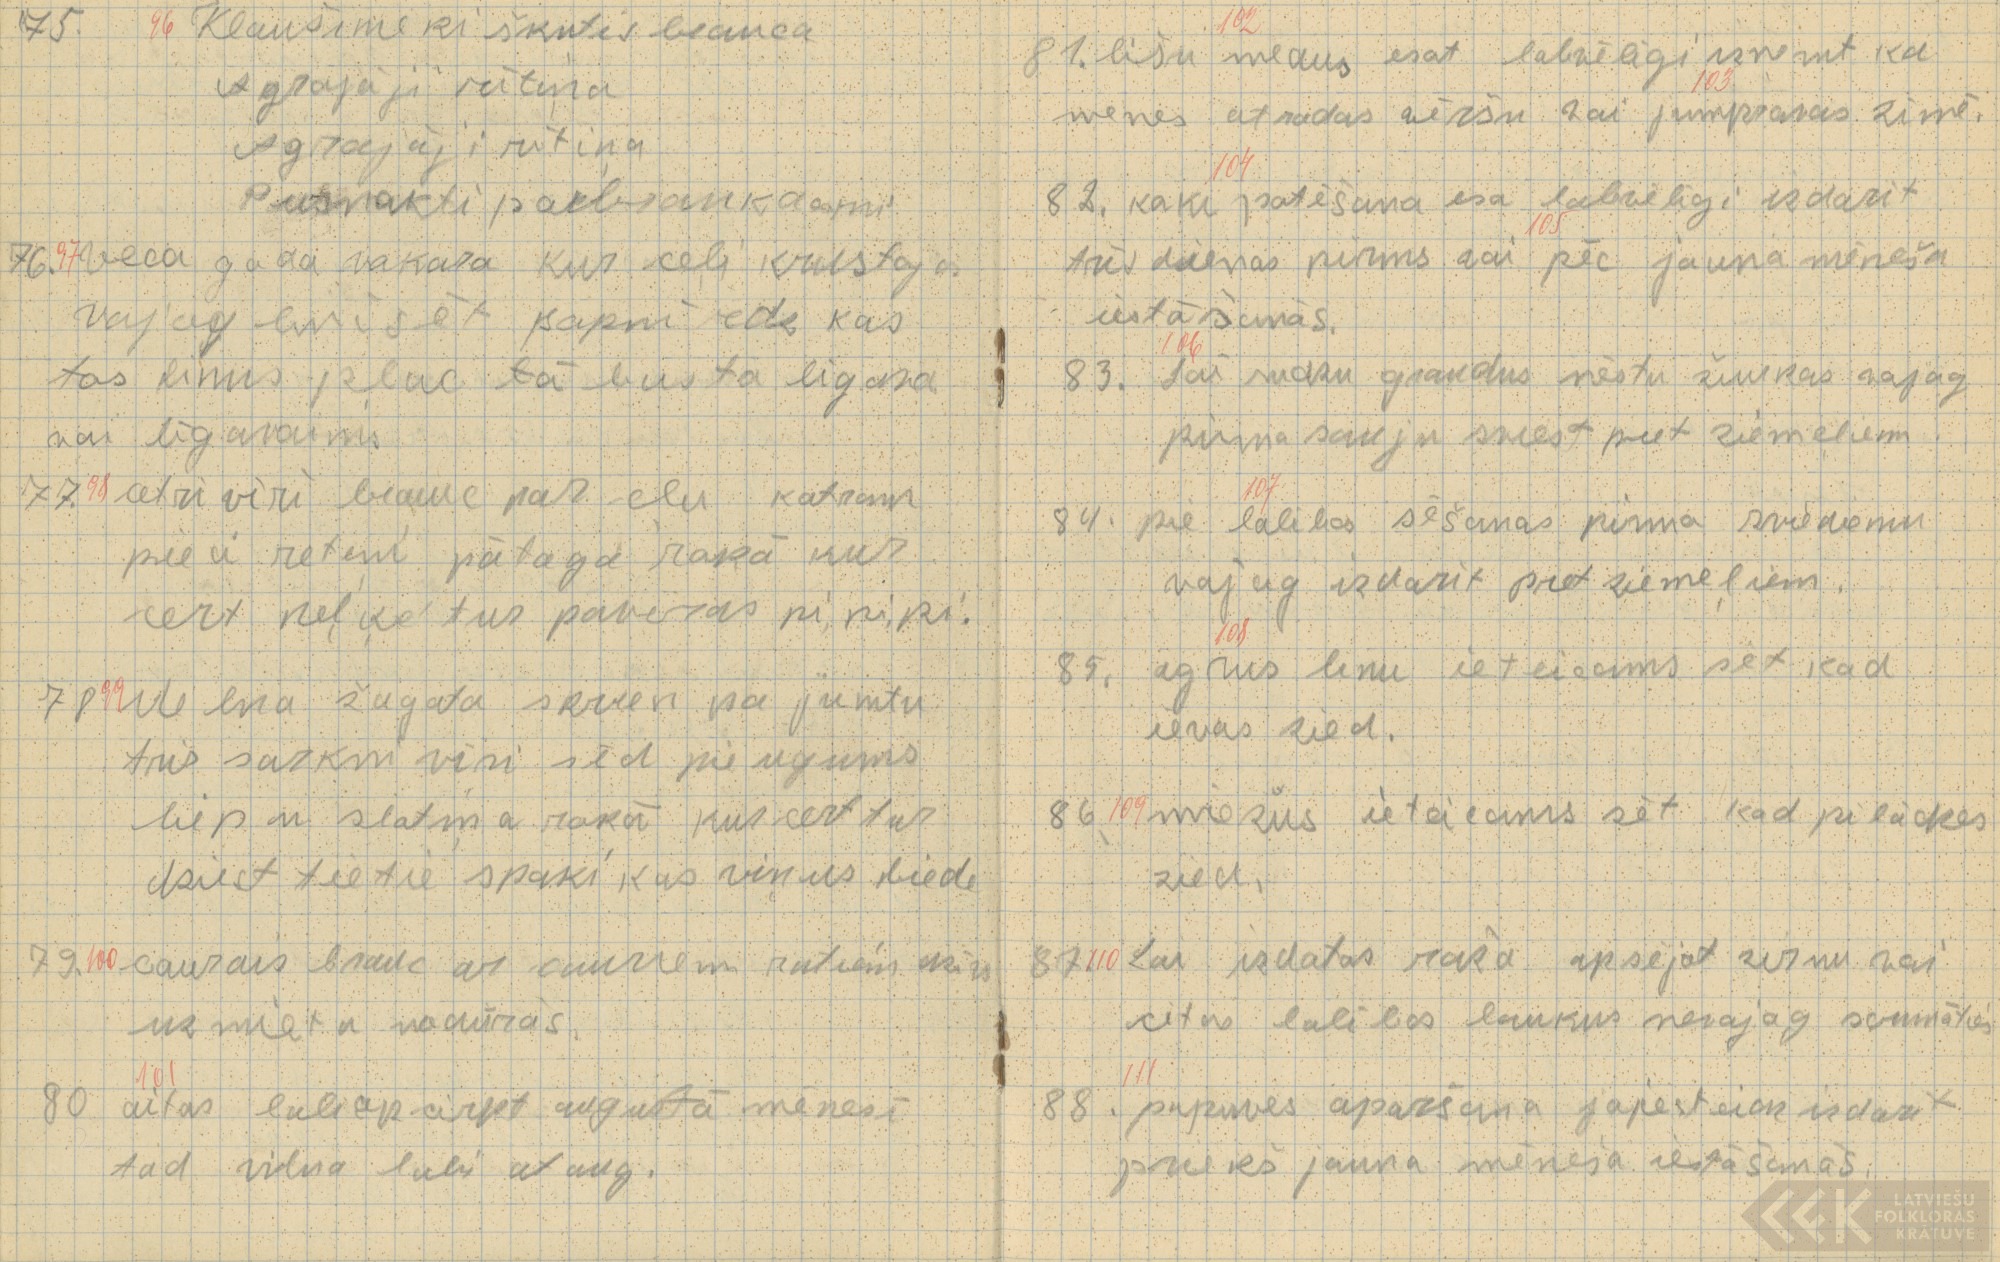 75. 96 Klaušimeki škutis brauca
Agrajāji rītiņa
Agrajāji rītiņa
Pusnakti pārbrauk
76. 97 Veca gada vakara kur ceļi krustojas
vajag linsēt
tas linus plūc tā bus ta ligava
vai līgavainis
77. 98 cetri viri brauc par elu katram
pieci reteņi pātaga rokā kur
cert neļķe tur paveras pi, pi, pi.
78 99 Melna žagata skrien pa jumtu
tris sarkni viri sēd pie uguns
liepu slatiņa rokā kur cert tur
dziest tie tie spaki kas vinus biede
79. 100 caurais brauc ar cauriem ratiem
uz mietu nodūrās.
80 101 aitas labi apcirpt augustā mēnesi
tad vilna labi ataug.
102
81. bišu medus esat labvēligi izņemt ka
103
menes atradas vēršu vai jumpravas zimē.
104
82. kaķi patēšana esa labvēligi izdarit
105
tris dienas pirms vai pēc jauna mēneša
iestāšanās.
106
83. Lai rudzu graudus nēstu žurkas vajag
pirma sauju sviest pret ziemeļiem.
107
84. pie labibas sēšanas pirma zviedienu
vajag izdarit pret ziemeļiem.
108
85. agrus linu ieteicams sēt kad
ievas zied.
86. 109 miežus ieteicams sēt kad pilādzes
zied.
87 110 Lai izdotas raža apsējot zirnu vai
citas labibas laukus nevajag
111
88. papuves aparšana jājesteidz izdarit
priekš jauna mēneša iestāšanās.
LATVIEŠU
FOLKLORAS
KRĀTUVE